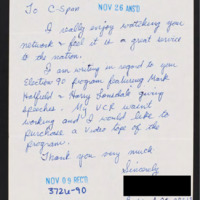 To C-Span
NOV 26 REC'D
I really enjoy watching your
network & feel it is a great service
to the nation.
I am writing in regard to your
Election 90 program featuring Mark
Hatfield & Harry Lonsdale giving
speeches. My VCR wasint
working and I would like to
purchase a video tape of the
program.
Thank you very much
Sincerely
NOV 09 REC'D
3726-90